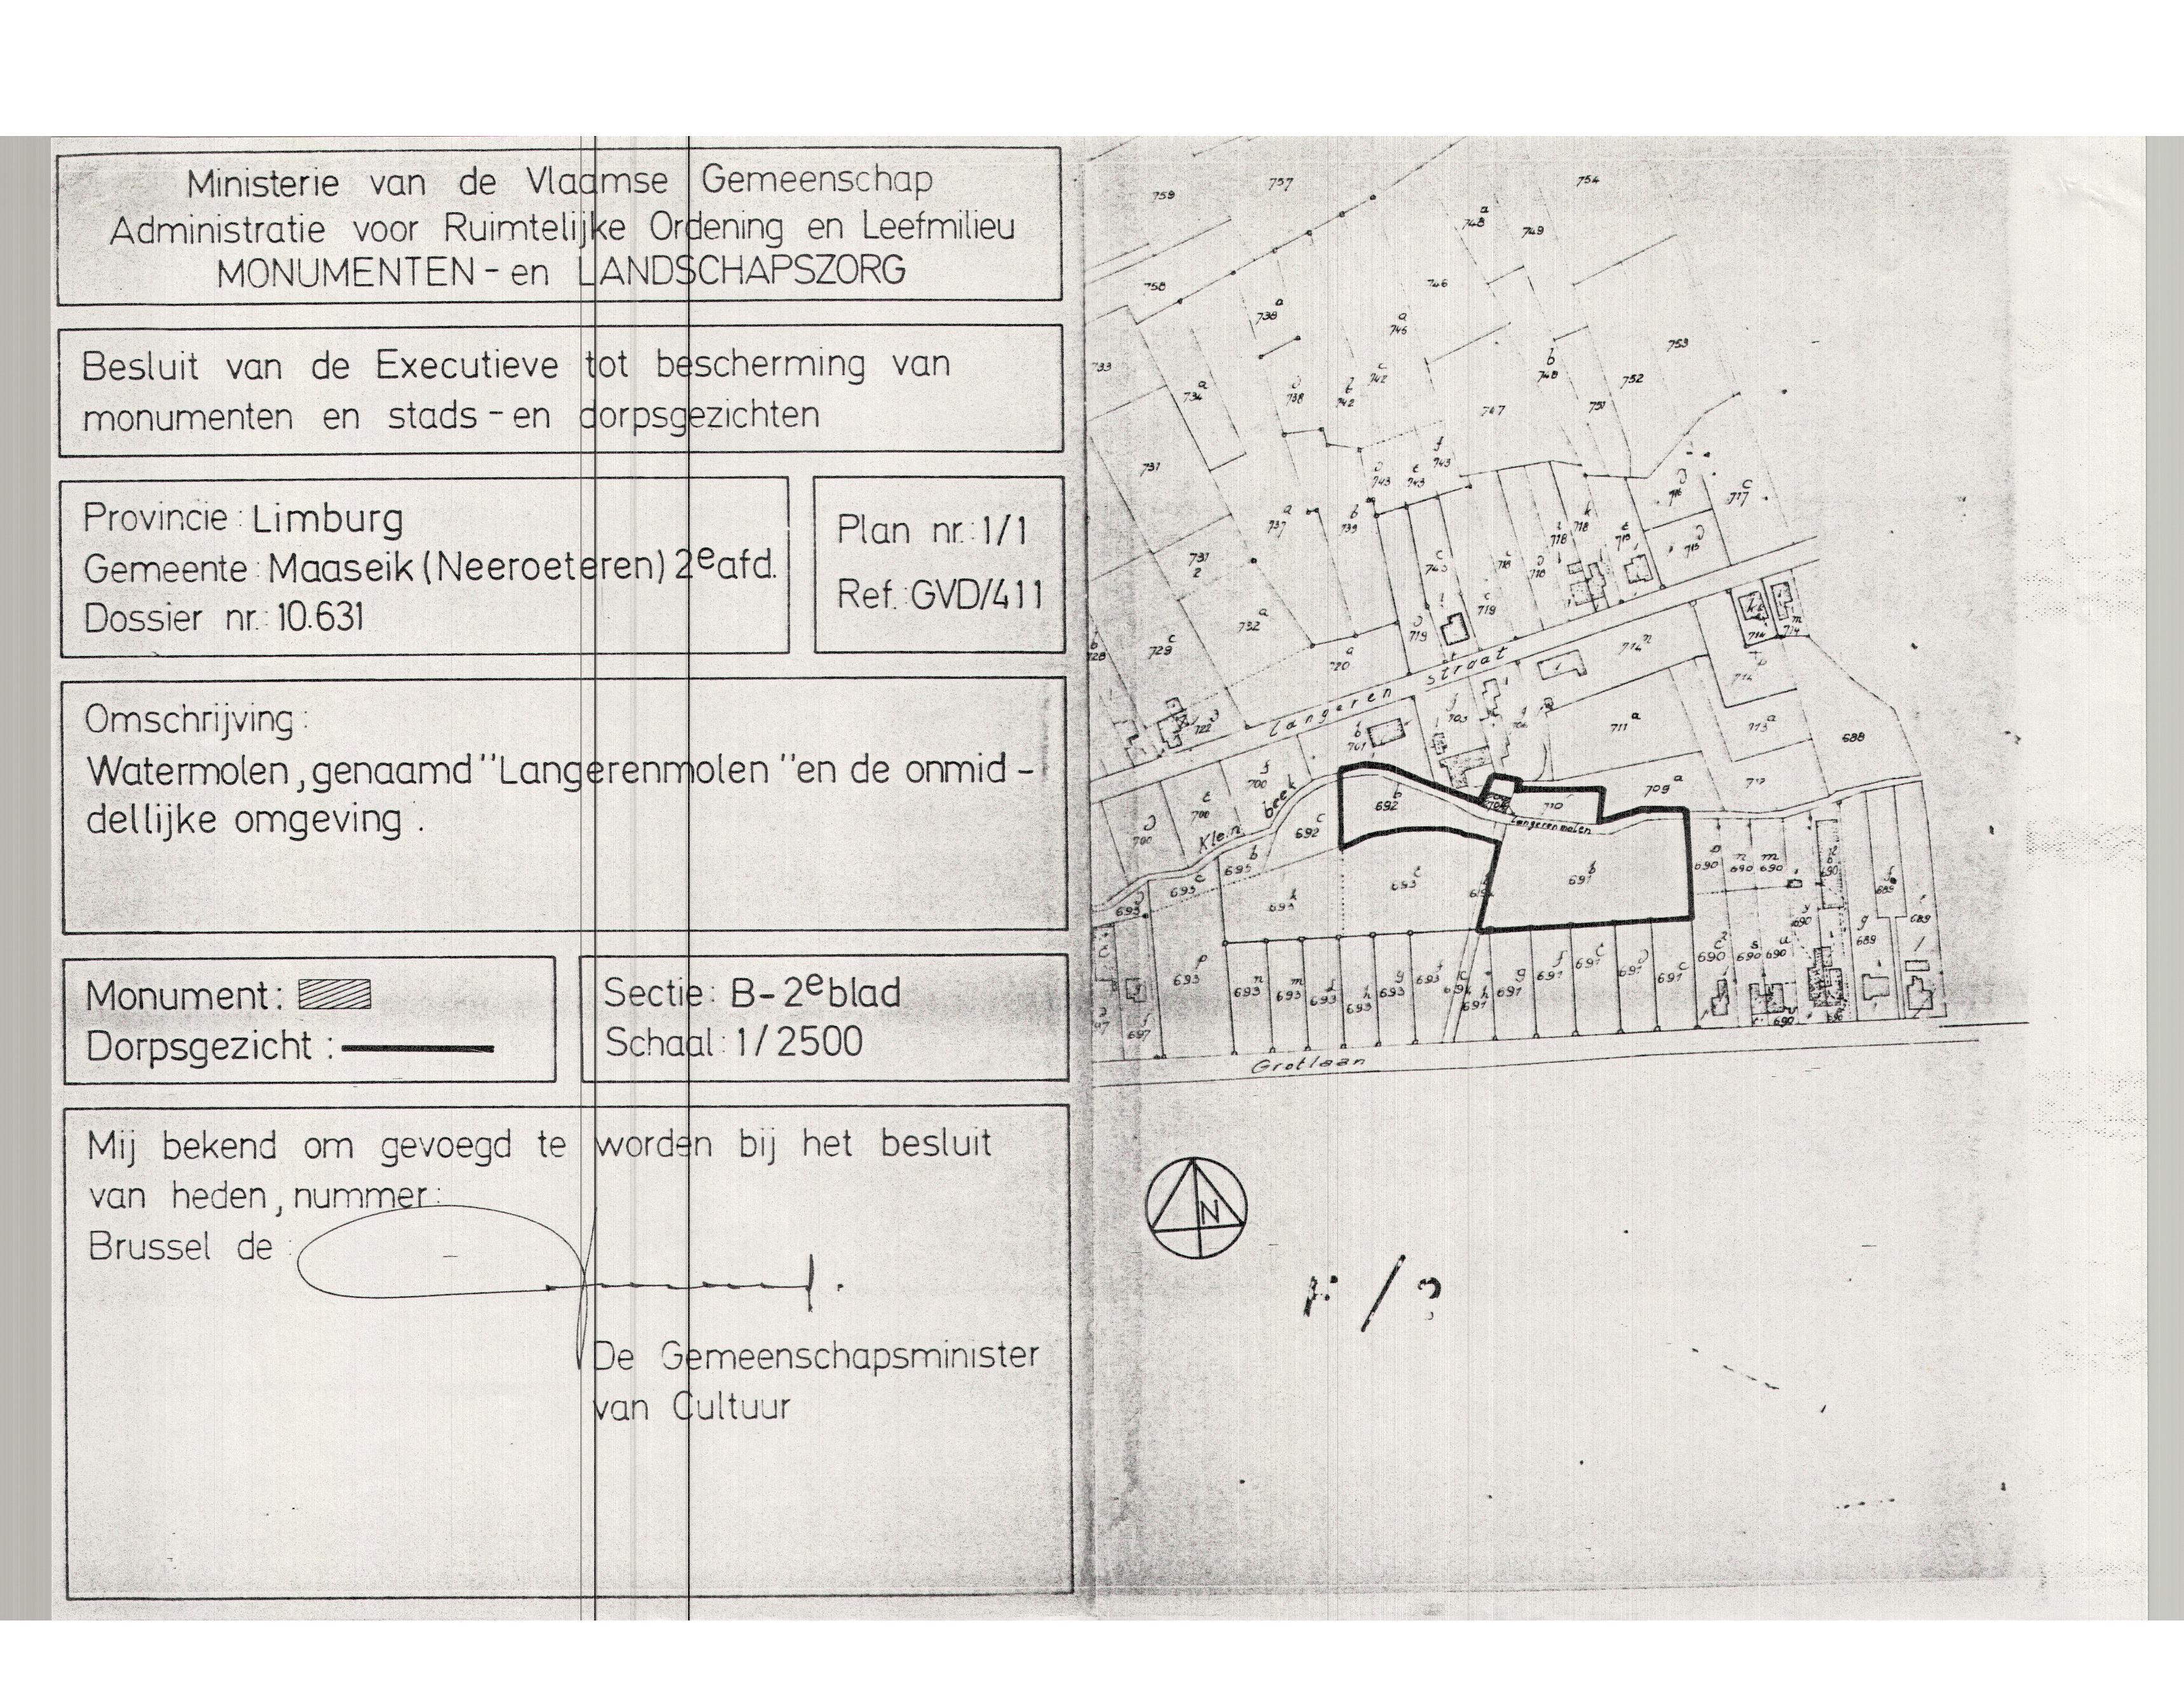 Ministerie van de Vlaamse Gemeenschap
Administratie voor Ruimtelijke Ordening en Leefmilieu
MONUMENTEN - en LANDSCHAPSZORG
Besluit van de Executieve tot bescherming van
monumenten en stads - en dorpsgezichten
Provincie : Limburg
Gemeente : Maaseik (Neeroeteren) 2e afd.
Dossier nr.: 10.631
Plan nr.: 1/1
Ref. : GVD/411
Omschrijving :
Watermolen, genaamd "Langerenmolen" en de onmid -
dellijke omgeving .
Monument :
Dorpsgezicht :
Sectie : B - 2e blad
Schaal : 1/2500
Mij bekend om gevoegd te worden bij het besluit
van heden, nummer :
Brussel de :
De Gemeenschapsminister
van Cultuur
759
757
754
a
748
749
758
a
738
746
a
745
733
753
b
748
752
751
a
734
c
742
747
731
f
743
c
717
a
737
b
739
731
2
732 a
c
729
a
720
c
719
719
langeren straat
714 n
711 a
713 a
688
712
709 a
710
Langerenmolen
b
701
f
700
Klein beek
b
692
c
692
b
695
c
693
k
693
b
691
p
690
n
690
m
690
p
693
n
693
m
693
g
693
g
691
f
691
c
691
g
689
Grotlaan
N